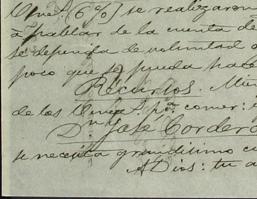 (6%) se realizaron
a hablar de la cuenta de
se dependa de voluntad
poco que se pueda
Recursos. Min
de los por comer:
Dn José Cordero
se necesita grandisimo cu
A Dios: tu a